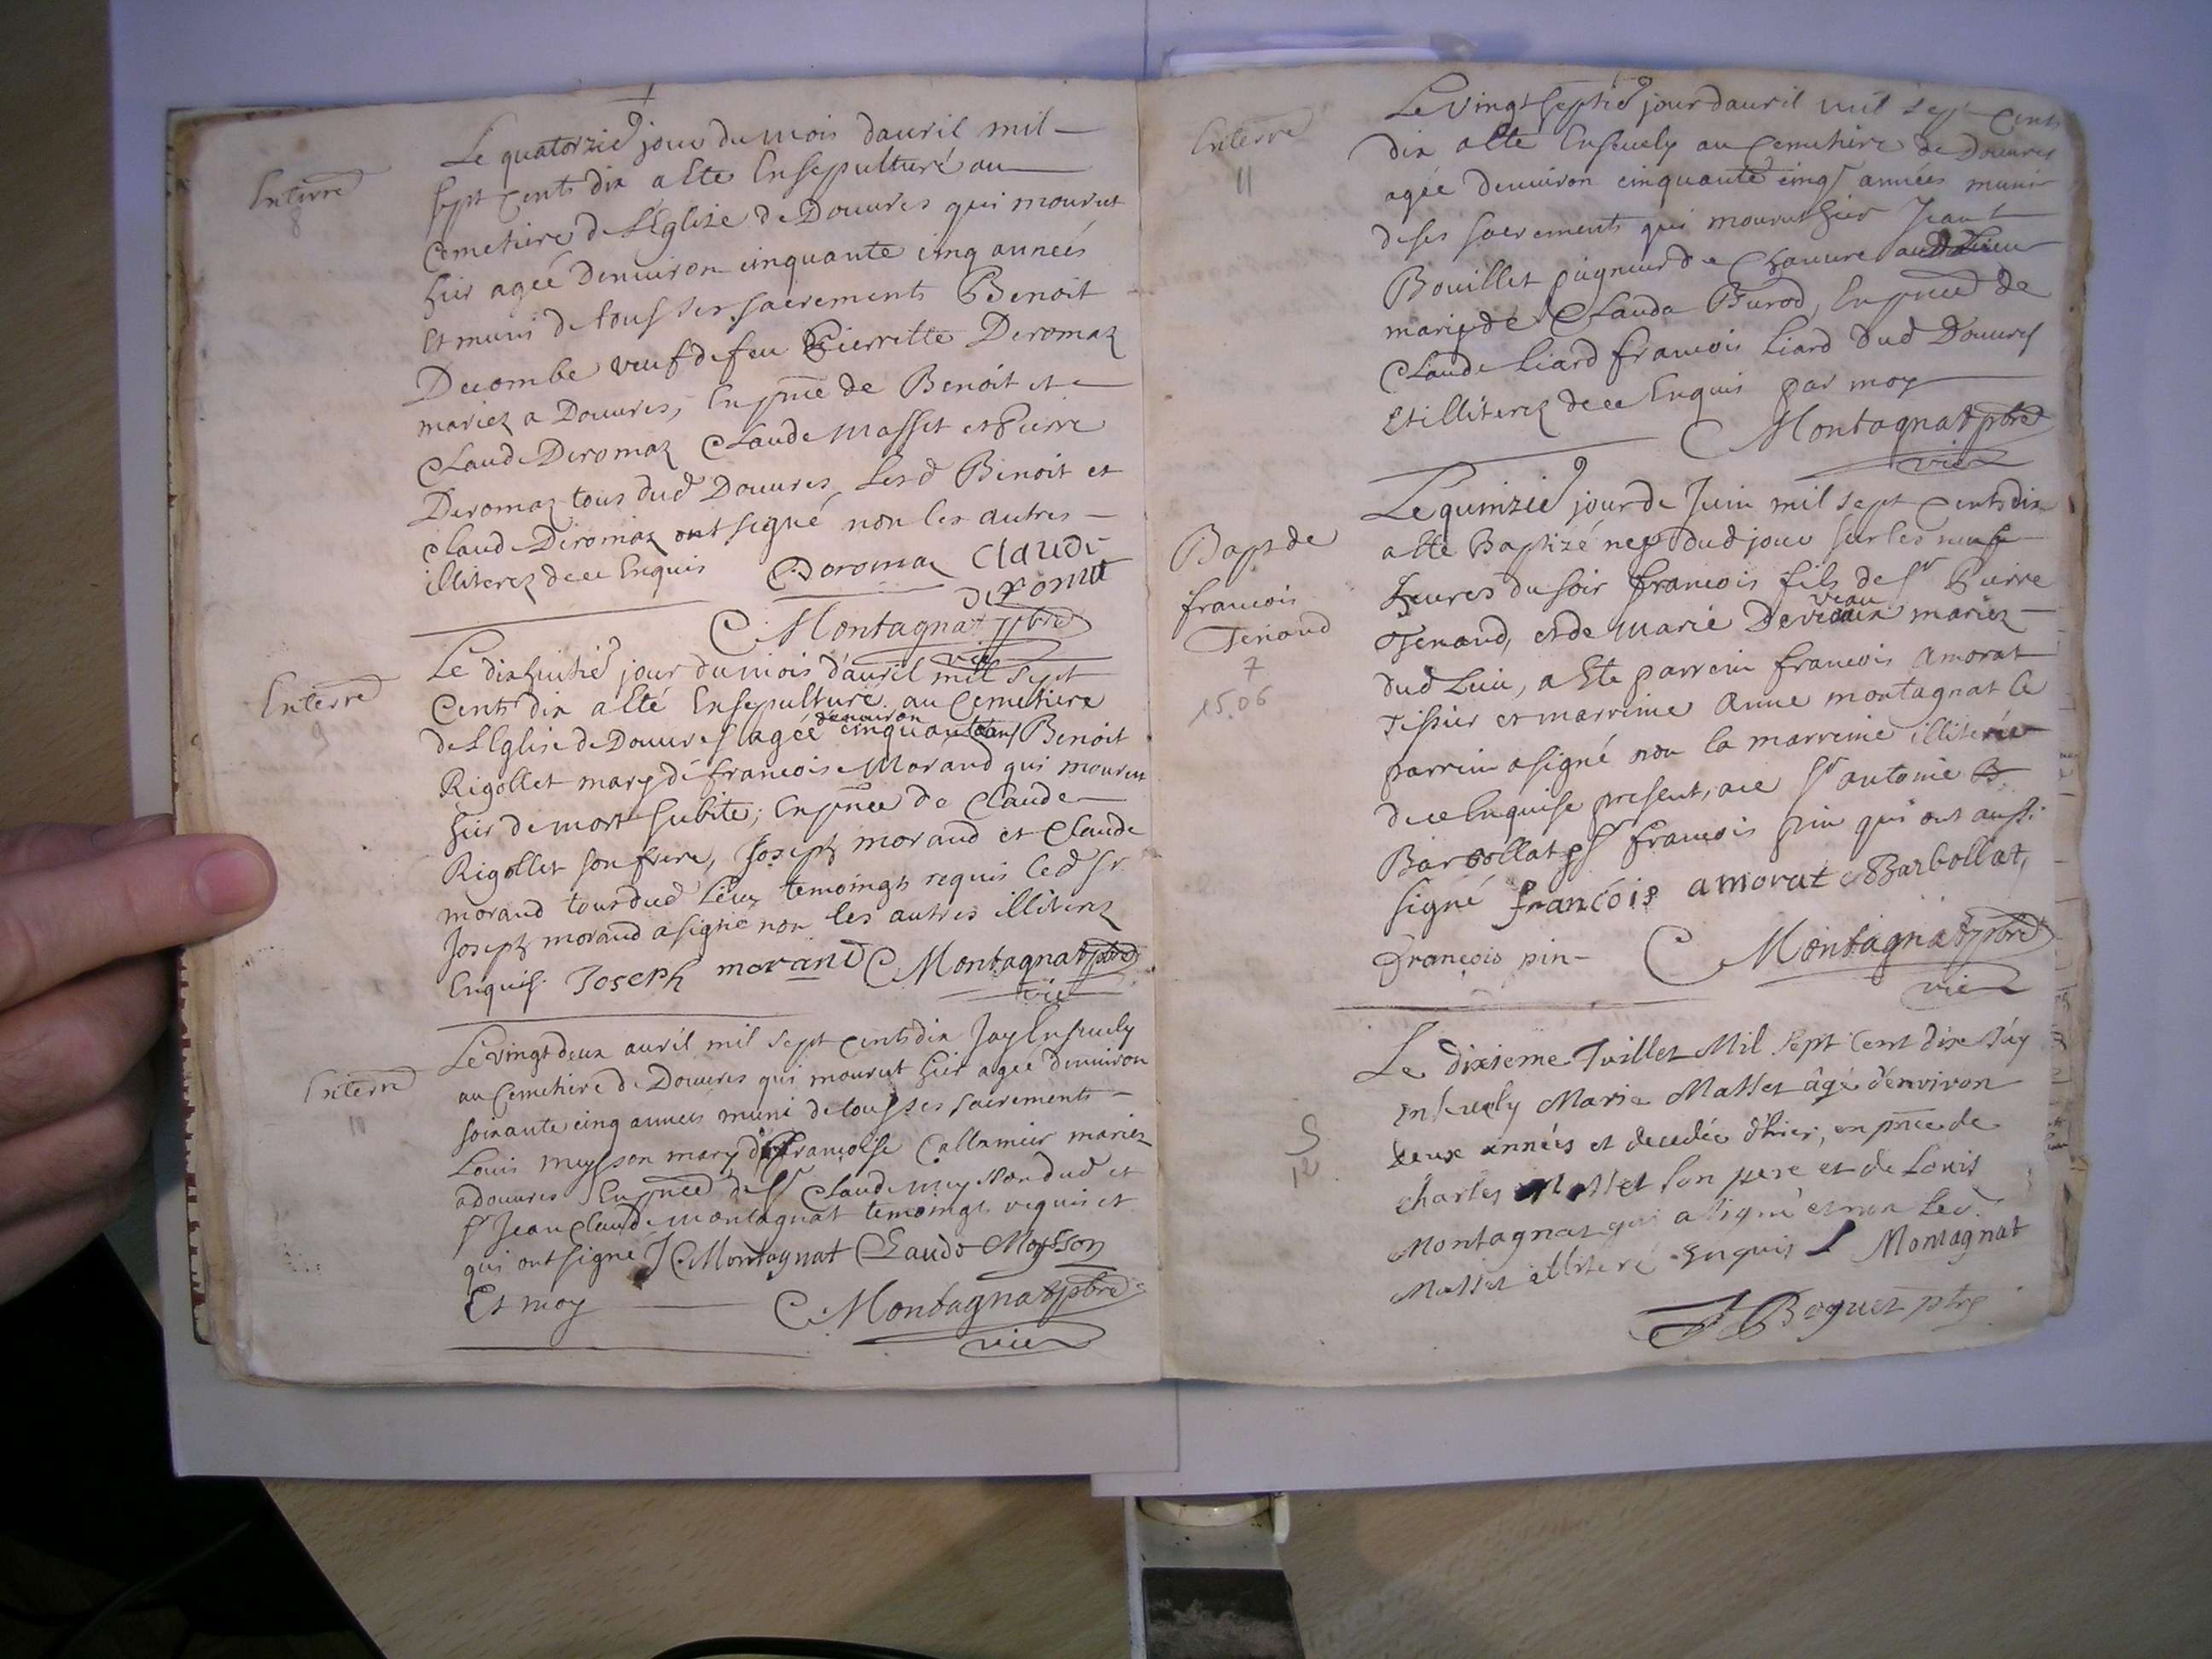 Enterré
8
Le quatorzie jour du mois dauril mil
sept cents dix a Ete Ensepulturé au
Cemetiere de L'Eglise de Douures qui mourut
hier agée denuiron cinquante cinq années
Et muni de tous ses sacrements Benoit
Decombe veuf de feu Pierrette Deromaz
mariez a Douures, En pnce de Benoit et
Claude Deromaz Claude Masset et Pierre
Deromaz tous dud Douures Lesd Benoit et
Claude Deromaz ont signé non les autres
illiterez de ce Enquis Deromaz Claude
Montagnat pbre
vic
Enterré
9
Le dixhuitie jour du mois dauril mil sept
Cents dix a Eté Ensepulturé au Cemetiere
denuiron
de L'Eglise de Douures agée cinquante ans Benoit
Rigollet mary de francoise Morand qui mourut
hier de mort subite; En pnce de Claude
Rigollet son frere, Joseph morand et Claude
morand tous dud Lieu temoings requis led sr.
Joseph morand a signé non les autres illiterez
Enquis. Joseph morand Montagnat pbre
vic
Enterré
10
Le vingt deux auril mil sept cents dix Jay Enseuely
au Cemetiere de Douures qui mourut hier agée denuiron
soixante cinq annees muni de tous ses sacrements
Louis meysson mary de francoise Callamier mariez
a douures En pnce de sr Claude meysson dud et
sr Jean Claude montagnat temoings requis et
qui ont signé J C Montagnat Claude Meysson
Et moy Montagnat pbre
vic
Enterré
11
Le vingt septie jour dauril mil sept cents
dix a Ete Enseuely au Cemetiere de Douures
agée denuiron cinquante cinq années muni
de ses sacrements qui mourut hier Jean
Bouillet pigneur de Chanure aud Lieu
marié de Clauda Burod, En pnce de
Claude Liard francois Liard dud Douures
Et illiterez de ce Enquis par moy
Montagnat pbre
vic
Bapt de
francois
Tenand
7
15.06
Le quinzie jour de Juin mil sept cents dix
a Ete Baptizé ney dud jour sur les neuf
heures du soir francois fils de sr Pierre
veau
Tenand, et de Marie De mariez
dud Lieu, a Ete parrein francois Amorat
Tissier et marreine Anne montagnat le
parrein a signé non la marreine illiterée
de ce Enquise present, auec sr antoine B
Barbollat et sr francois pin qui ont aussi
signé francois amorat Barbollat,
françois pin Montagnat pbre
vic
S
12
Le dixieme Juillet Mil sept cent dix j'ay
enseuely Marie Masset âgé d'environ
deux années et decedée d'hier, en pnce de
Charles Masset son pere et de Louis
Montagnat qui a signé et non led.
Masset illiteré enquis L Montagnat
J Boguet ptre